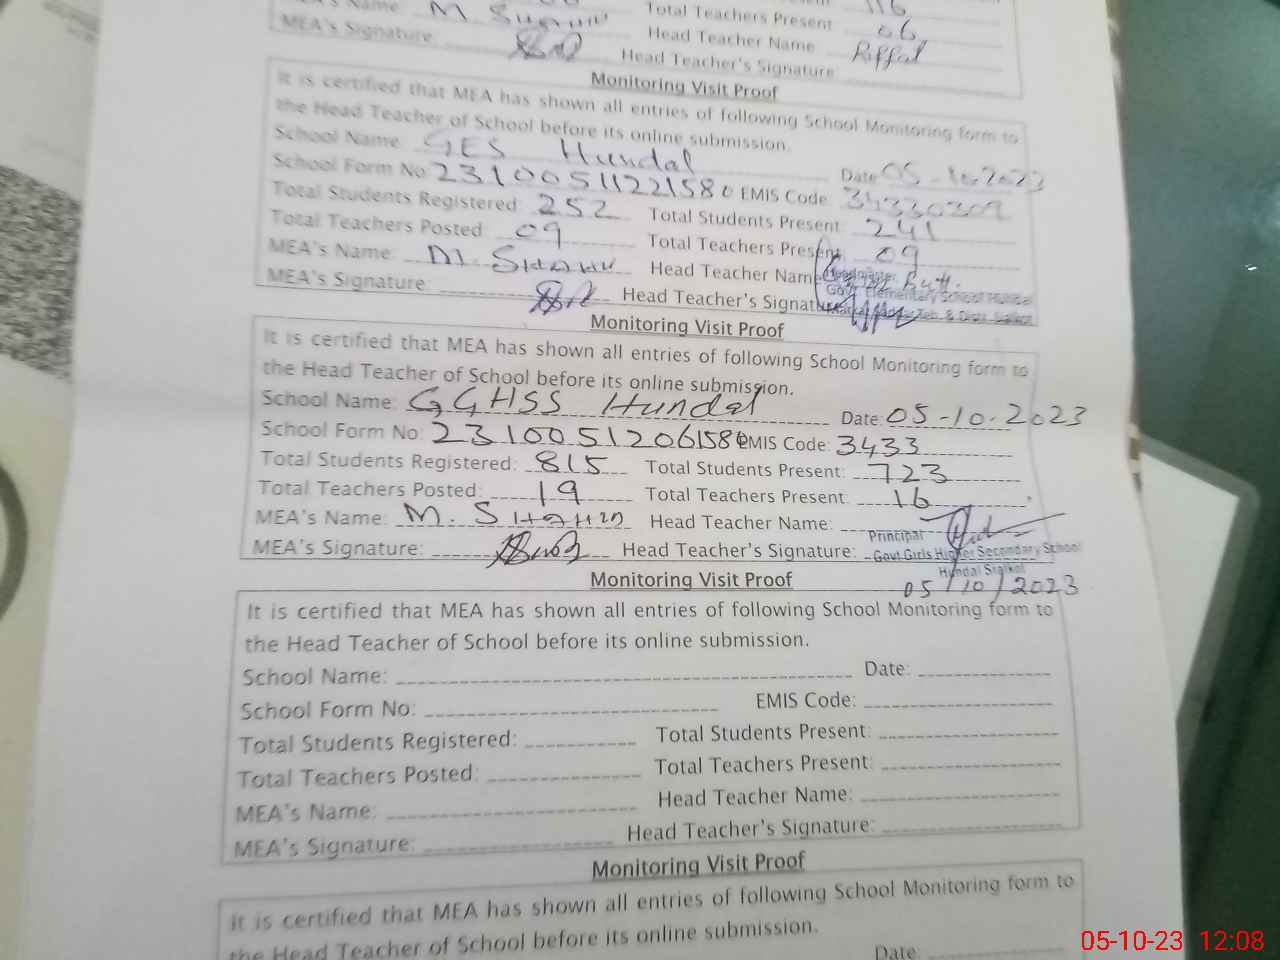 Total Teachers Present 06
MEA's Signature: Head Teacher Name Riffat
Head Teacher's Signature
Monitoring Visit Proof
It is certified that MEA has shown all entries of following School Monitoring form to
the Head Teacher of School before its online submission.
School Name: GES Hundal Date 05-10.2023
School Form No 23100511221580 EMIS Code: 34330309
Total Students Registered: 252 Total Students Present: 241
Total Teachers Posted: 09 Total Teachers Present: 09
MEA's Name: M. Shahin Head Teacher Name Butt.
MEA's Signature: Head Teacher's Signature
Govt. Elementary School Hundal
Monitoring Visit Proof
It is certified that MEA has shown all entries of following School Monitoring form to
the Head Teacher of School before its online submission.
School Name: GGHSS Hundal Date: 05-10.2023
School Form No: EMIS Code: 3433
Total Students Registered: 815 Total Students Present: 723
Total Teachers Posted: 19 Total Teachers Present: 16
MEA's Name: M. Shahin Head Teacher Name:
Principal
MEA's Signature: Head Teacher's Signature: Govt Girls Higher Secondary School
Hundal Sialkot
Monitoring Visit Proof 05/10/2023
It is certified that MEA has shown all entries of following School Monitoring form to
the Head Teacher of School before its online submission.
School Name: Date:
School Form No: EMIS Code:
Total Students Registered: Total Students Present:
Total Teachers Posted: Total Teachers Present:
MEA's Name: Head Teacher Name:
MEA's Signature: Head Teacher's Signature:
Monitoring Visit Proof
It is certified that MEA has shown all entries of following School Monitoring form to
the Head Teacher of School before its online submission.
Date:
05-10-23 12:08